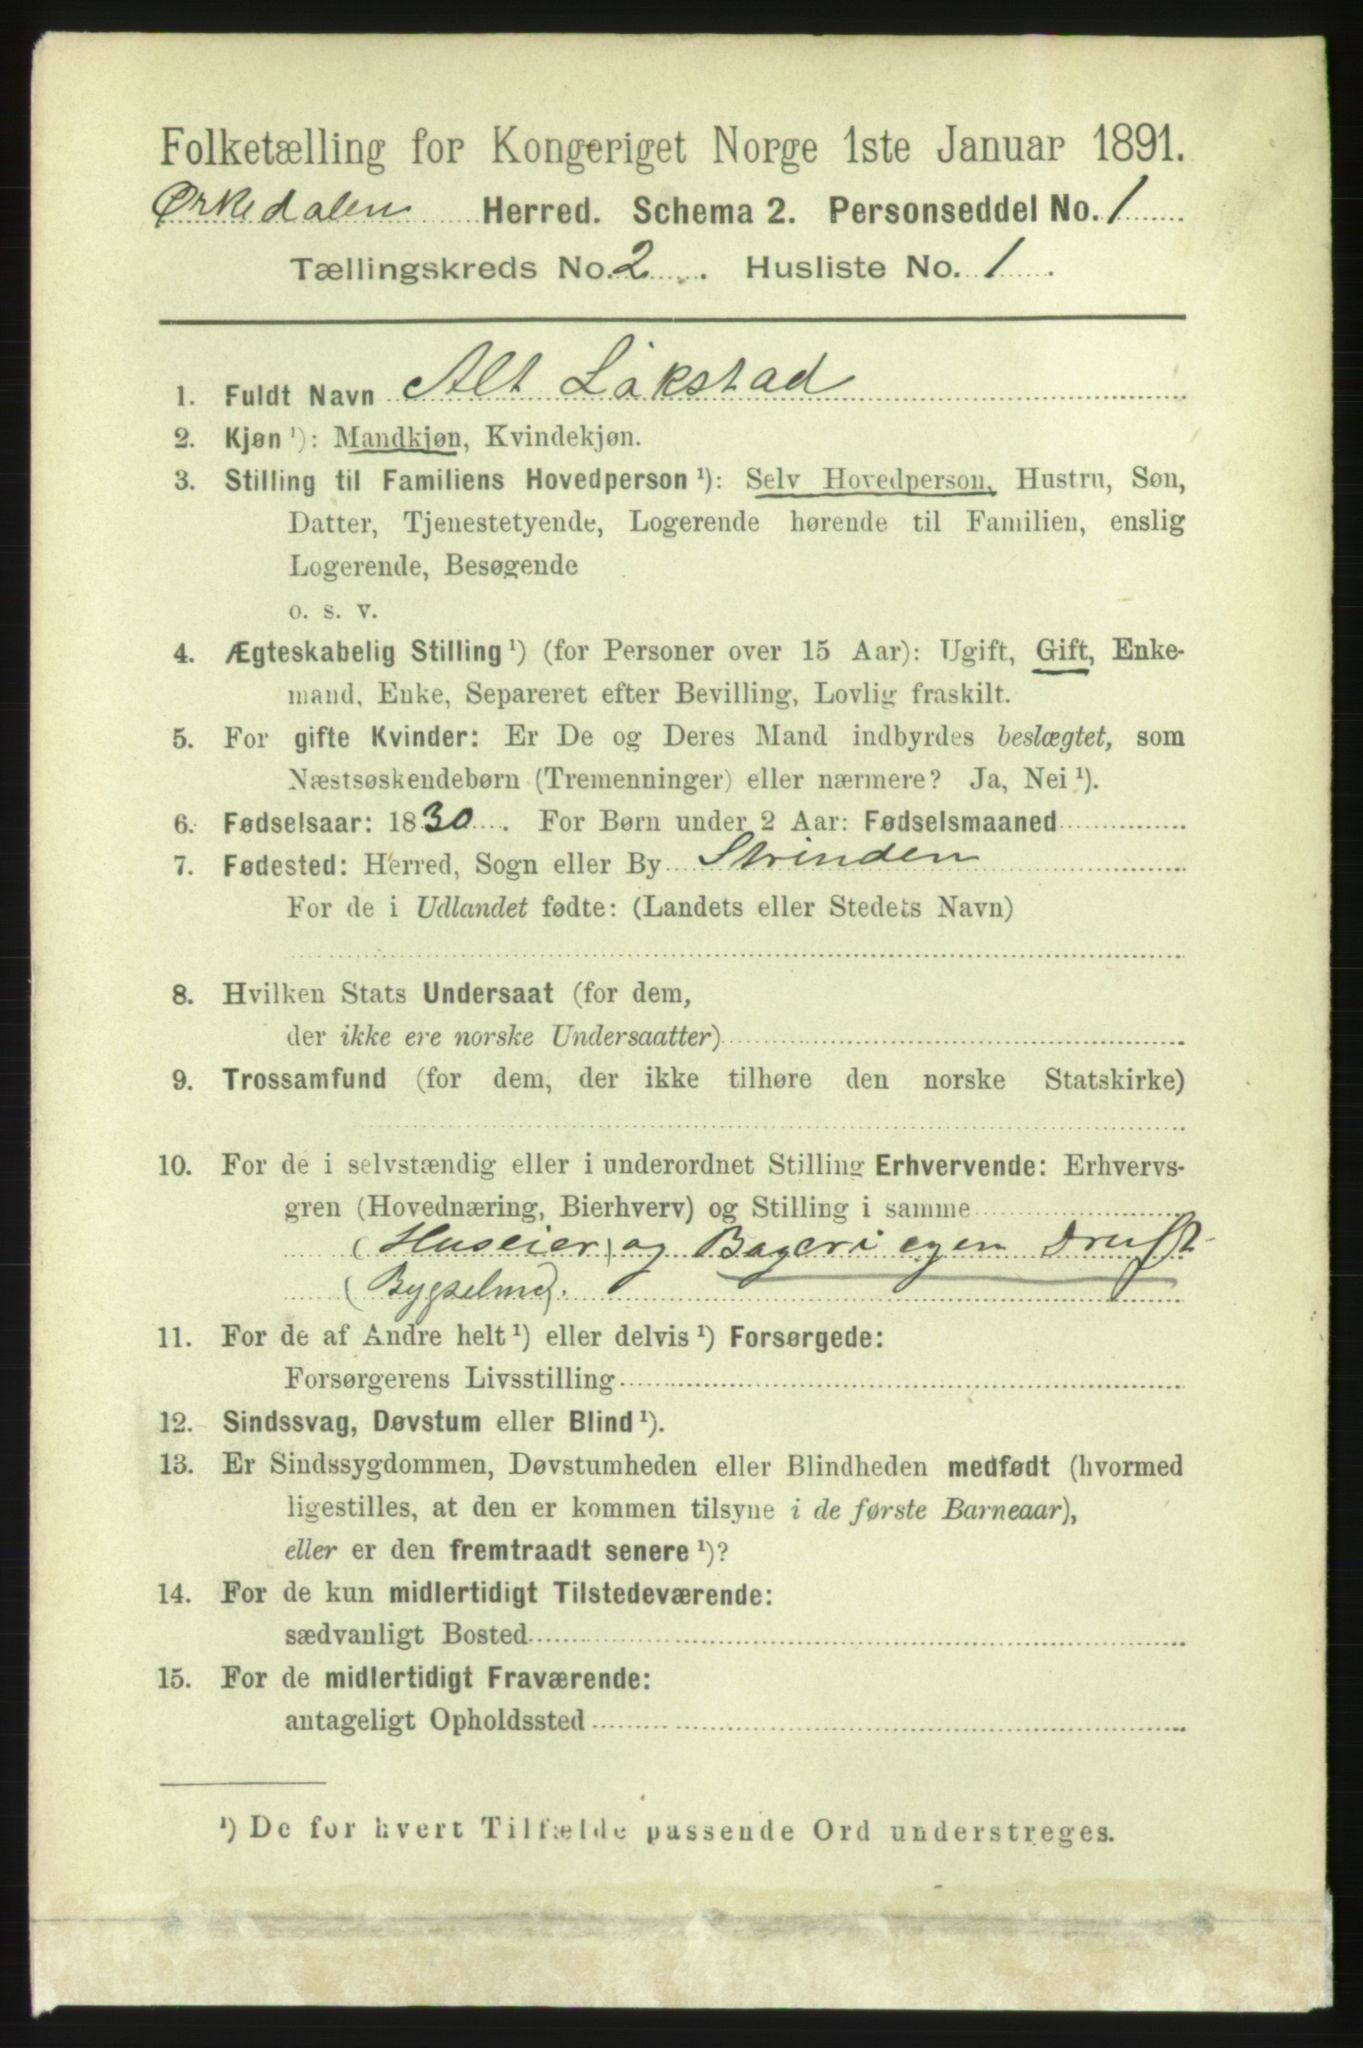 Folketælling for Kongeriget Norge 1ste Januar 1891.
Ørkedalen Herred. Schema 2. Personseddel No. 1
Tællingskreds No. 2. Husliste No. 1.
1. Fuldt Navn Alt Låkstad
2. Kjøn ¹): Mandkjøn, Kvindekjøn.
3. Stilling til Familiens Hovedperson ¹): Selv Hovedperson, Hustru, Søn,
Datter, Tjenestetyende, Logerende hørende til Familien, enslig
Logerende, Besøgende
o. s. v.
4. Ægteskabelig Stilling ¹) (for Personer over 15 Aar): Ugift, Gift, Enke-
mand, Enke, Separeret efter Bevilling, Lovlig fraskilt.
5. For gifte Kvinder: Er De og Deres Mand indbyrdes beslægtet, som
Næstsøskendebørn (Tremenninger) eller nærmere? Ja, Nei ¹).
6. Fødselsaar: 1830. For Børn under 2 Aar: Fødselsmaaned
7. Fødested: Herred, Sogn eller By Strinden
For de i Udlandet fødte: (Landets eller Stedets Navn)
8. Hvilken Stats Undersaat (for dem,
der ikke ere norske Undersaatter)
9. Trossamfund (for dem, der ikke tilhøre den norske Statskirke)
10. For de i selvstændig eller i underordnet Stilling Erhvervende: Erhvervs-
gren (Hovednæring, Bierhverv) og Stilling i samme
(Huseier) og Bager i egen Drift
(Bygselmd).
11. For de af Andre helt ¹) eller delvis ¹) Forsørgede:
Forsørgerens Livsstilling
12. Sindssvag, Døvstum eller Blind ¹).
13. Er Sindssygdommen, Døvstumheden eller Blindheden medfødt (hvormed
ligestilles, at den er kommen tilsyne i de første Barneaar),
eller er den fremtraadt senere ¹)?
14. For de kun midlertidigt Tilstedeværende:
sædvanligt Bosted
15. For de midlertidigt Fraværende:
antageligt Opholdssted
¹) De for hvert Tilfælde passende Ord understreges.